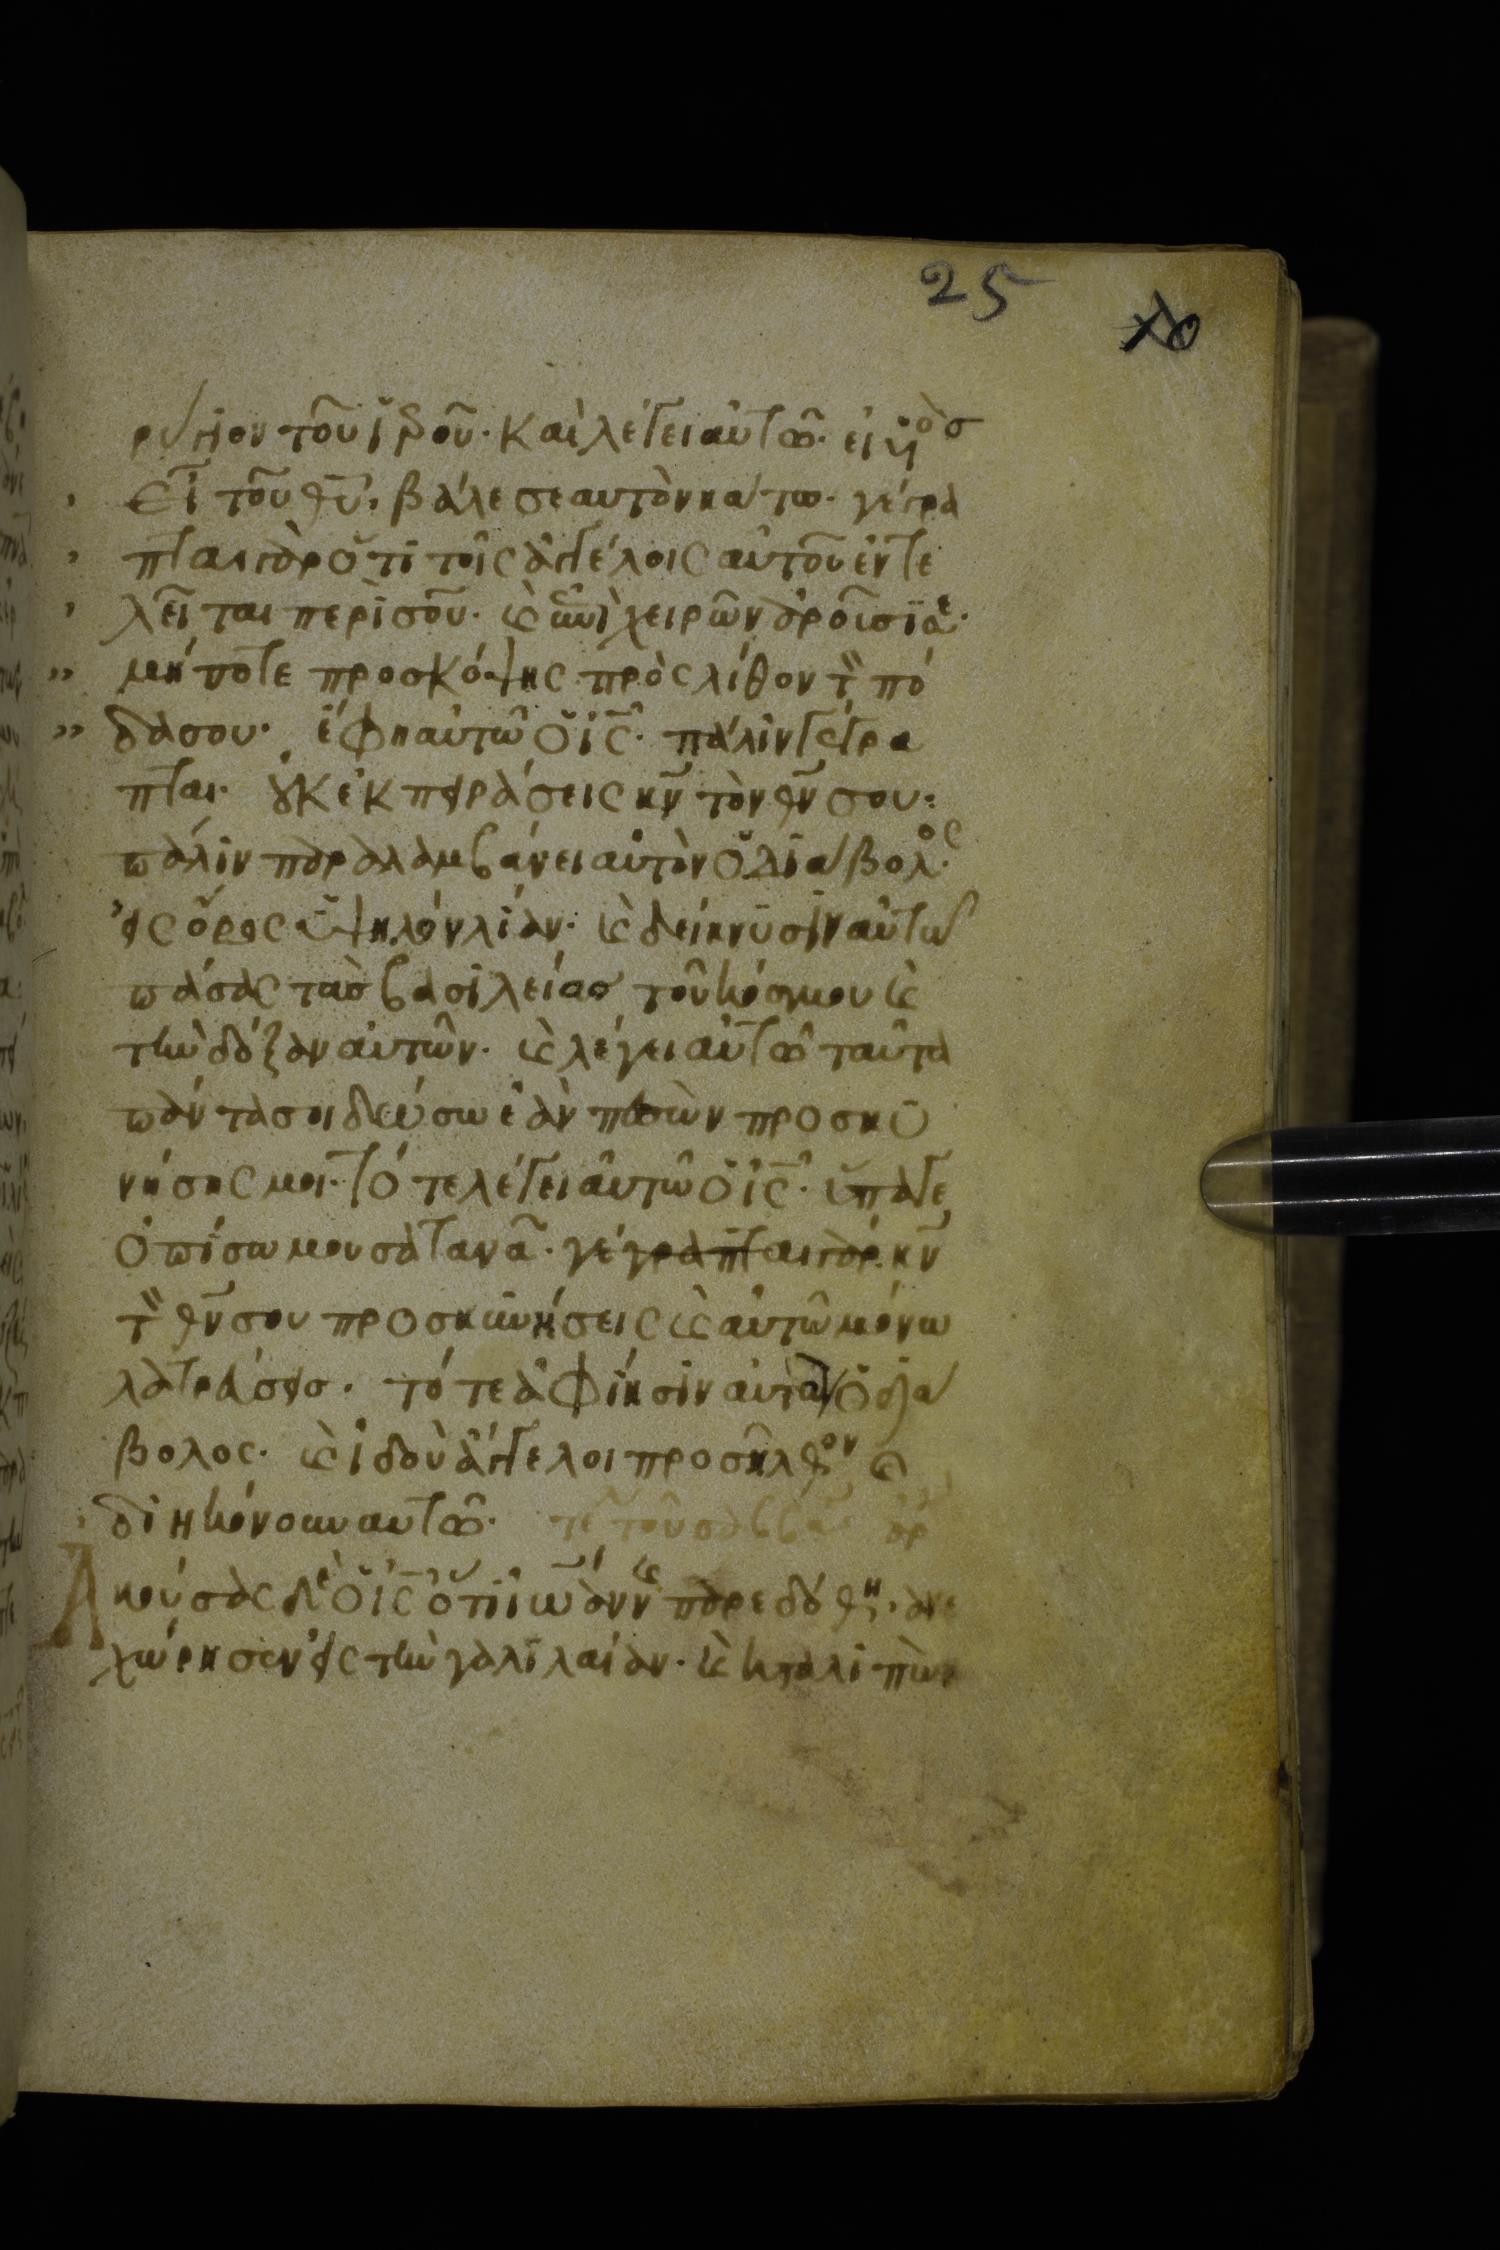 25
ρύγιον τοῦ ἱεροῦ· καὶ λέγει αὐτῶ· εἰ υἱὸσ
εἶ τοῦ θῡ, βάλε σεαυτὸν κάτω· γέγρα
πται γὰρ ὅτι τοῖς ἀγγέλοις αὐτοῦ ἐντε
λεῖται περὶ σοῦ· κ̀ ἐπὶ χειρῶν ἀροῦσί σε·
μήποτε προσκόψης πρὸς λίθον τὸν πό
δα σου· ἔφη αὐτῶ ὁ ις̄· πάλιν γέγρα
πται· οὐκ ἐκπειράσεις κν̄ τὸν θν̄ σου:
πάλιν παραλαμβάνει αὐτὸν ὁ διάβολος
εἰς ὄρος ὑψηλὸν λίαν· κ̀ δείκνυσιν αὐτῶ
πάσας τὰσ βασιλείασ τοῦ κόσμου κ̀
τὴν δόξαν αὐτῶν· κ̀ λέγει αὐτῶ ταῦτα
πάντα σοι δώσω ἐὰν πεσὼν προσκυ
νήσης μοι· τότε λέγει αὐτῶ ὁ ις̄· ὕπαγε
ὀπίσω μου σατανᾶ· γέγραπται γὰρ κν̄
τὸν θν̄ σου προσκυνήσεις κ̀ αὐτῶ μόνω
λατρεύσεισ· τότε ἀφίησιν αὐτὸν ὁ διά
βολος· κ̀ ἰδοὺ ἄγγελοι προσῆλθον κ̀
διηκόνουν αὐτῶ· τε τοῦ σαββα
Ακούσας δὲ ὁ ις̄ ὅτι ἰωάννης παρεδόθη· ἀνε
χώρησεν εἰς τὴν γαλιλαίαν· κ̀ καταλιπὼν